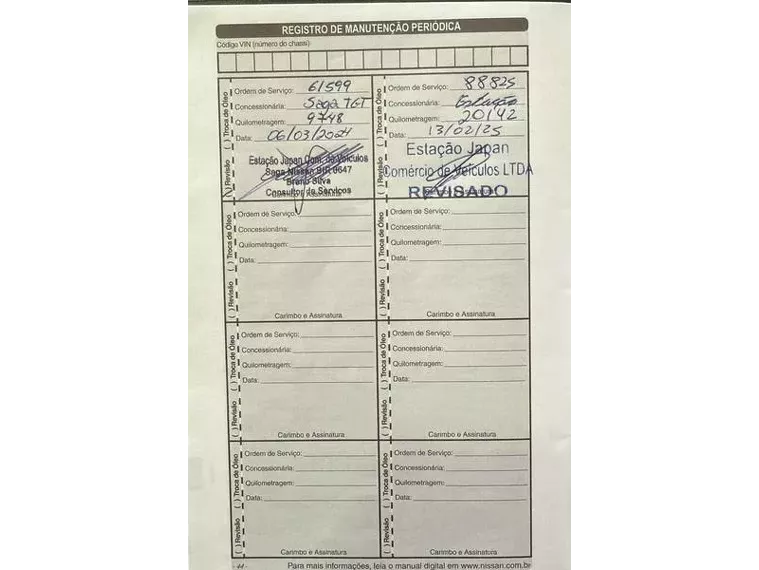 REGISTRO DE MANUTENÇÃO PERIÓDICA
Código VIN (número do chassi)
( ) Revisão ( ) Troca de Óleo
Ordem de Serviço: 61599
Concessionária: Saga TGT
Quilometragem: 9748
Data: 06/03/2024
Estação Japan Com. de Veículos
Saga Nissan SIR 0647
Bruno Silva
Consultor de Serviços
Carimbo e Assinatura
( ) Revisão ( ) Troca de Óleo
Ordem de Serviço: 88825
Concessionária: Estação
Quilometragem: 20142
Data: 13/02/25
Estação Japan
Comércio de Veículos LTDA
REVISADO
Carimbo e Assinatura
( ) Revisão ( ) Troca de Óleo
Ordem de Serviço:
Concessionária:
Quilometragem:
Data:
Carimbo e Assinatura
( ) Revisão ( ) Troca de Óleo
Ordem de Serviço:
Concessionária:
Quilometragem:
Data:
Carimbo e Assinatura
( ) Revisão ( ) Troca de Óleo
Ordem de Serviço:
Concessionária:
Quilometragem:
Data:
Carimbo e Assinatura
( ) Revisão ( ) Troca de Óleo
Ordem de Serviço:
Concessionária:
Quilometragem:
Data:
Carimbo e Assinatura
( ) Revisão ( ) Troca de Óleo
Ordem de Serviço:
Concessionária:
Quilometragem:
Data:
Carimbo e Assinatura
( ) Revisão ( ) Troca de Óleo
Ordem de Serviço:
Concessionária:
Quilometragem:
Data:
Carimbo e Assinatura
Para mais informações, leia o manual digital em www.nissan.com.br